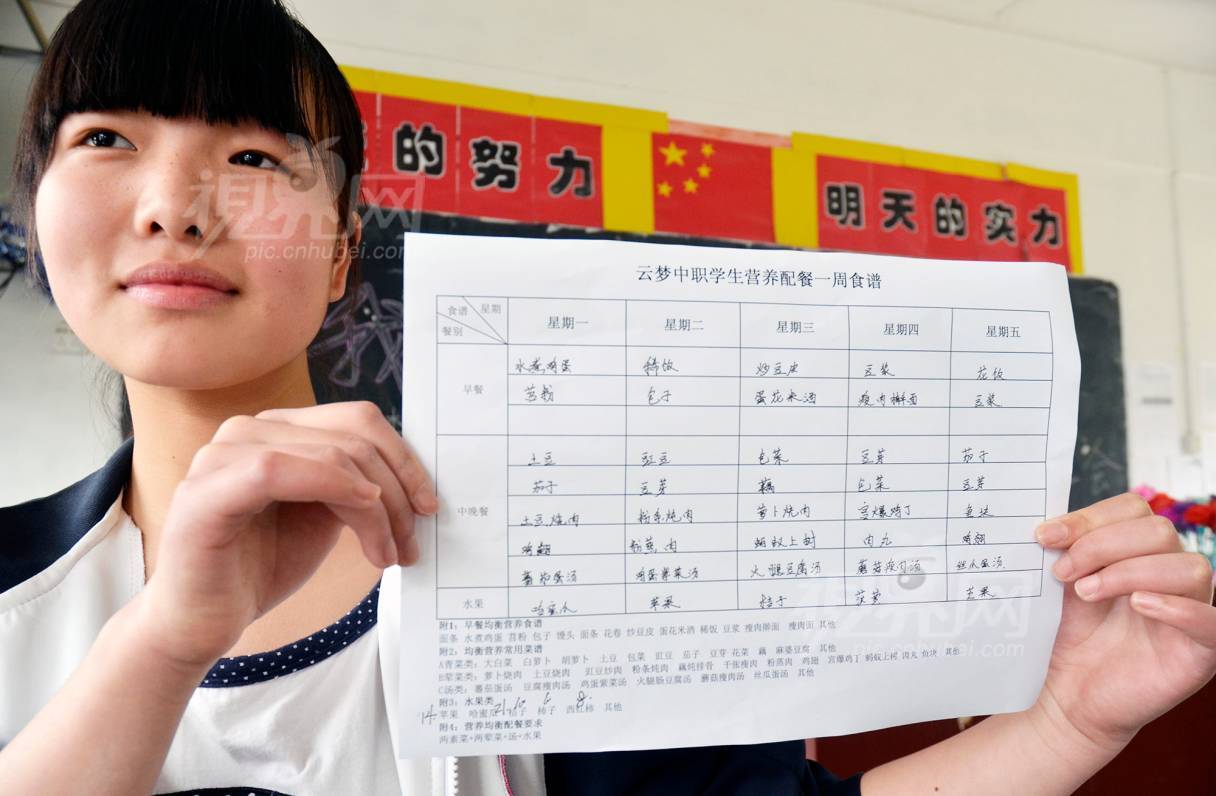 的努力
明天的实力
视界网
pic.cnhubei.com
我
云梦中职学生营养配餐一周食谱
食谱 星期
餐别
星期一 星期二 星期三 星期四 星期五
早餐
水煮鸡蛋 稀饭 炒豆皮 豆浆 花饭
苕粉 包子 蛋花米酒 瘦肉擀面 豆浆
中晚餐
土豆 豇豆 包菜 豆芽 茄子
茄子 豆芽 藕 包菜 豆芽
土豆烧肉 粉条炖肉 萝卜炖肉 宫爆鸡丁 鱼块
鸡翅 粉蒸肉 蚂蚁上树 肉丸 鸡翅
蕃茄蛋汤 鸡蛋紫菜汤 火腿豆腐汤 蘑菇瘦肉汤 丝瓜蛋汤
水果
哈蜜瓜 苹果 桔子 菠萝 芒果
附1：早餐均衡营养食谱
面条 水煮鸡蛋 苕粉 包子 馒头 面条 花卷 炒豆皮 蛋花米酒 稀饭 豆浆 瘦肉擀面 瘦肉面 其他
附2：均衡营养常用菜谱
A青菜类：大白菜 白萝卜 胡萝卜 土豆 包菜 豇豆 茄子 豆芽 花菜 藕 麻婆豆腐 其他
B荤菜类：萝卜烧肉 土豆烧肉 豇豆炒肉 粉条炖肉 藕炖排骨 千张瘦肉 粉蒸肉 鸡翅 宫爆鸡丁 蚂蚁上树 肉丸 鱼块 其他
C汤类：蕃茄蛋汤 豆腐瘦肉汤 鸡蛋紫菜汤 火腿肠豆腐汤 蘑菇瘦肉汤 丝瓜蛋汤 其他
附3：水果类
苹果 哈蜜瓜 桔子 柿子 西红柿 其他
附4：营养均衡配餐要求
两素菜+两荤菜+汤+水果
视界网
pic.cnhubei.com